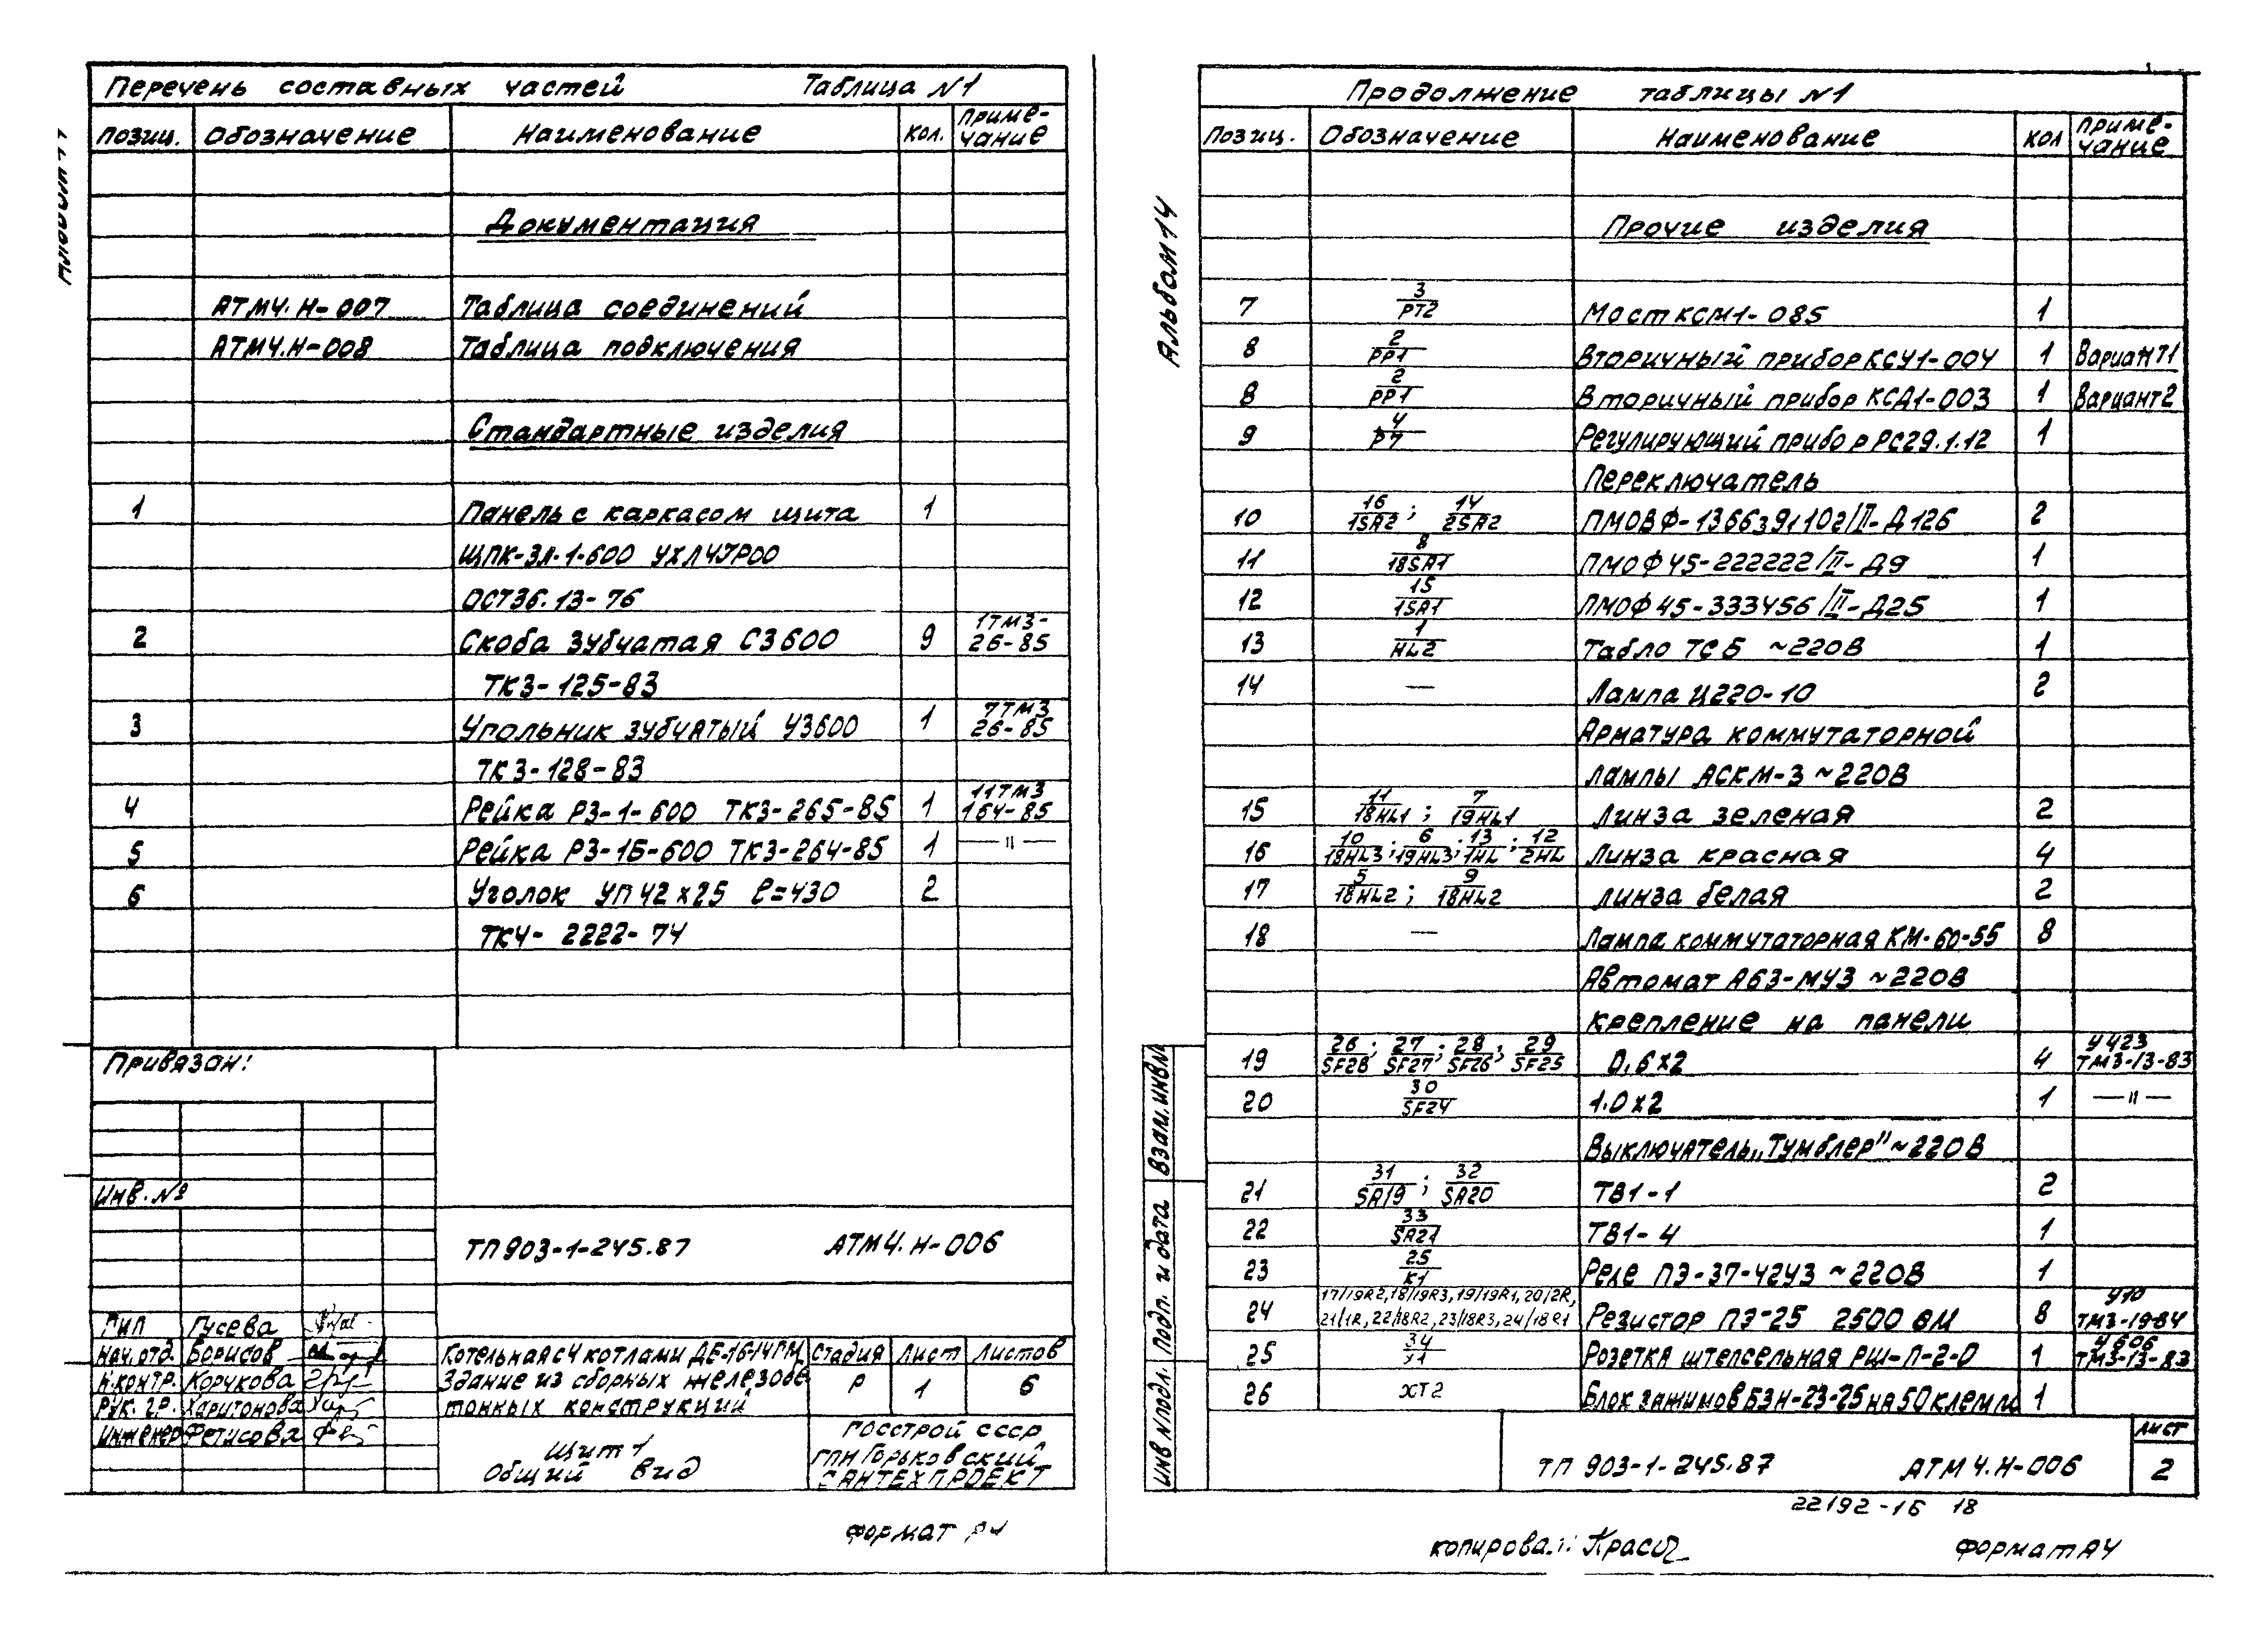 Перечень составных частей Таблица N1
позиц. Обозначение Наименование кол. Приме-
чание
Документация
АТМ4.Н-007 Таблица соединений
АТМ4.Н-008 Таблица подключения
Стандартные изделия
1 Панель с каркасом щита 1
ЩПК-3Л-1-600 УХЛ4JР00
ОСТ36.13-76
2 Скоба зубчатая СЗ600 9 1ТМ3-
26-85
ТК3-125-83
3 Угольник зубчатый УЗ600 1 7ТМ3
26-85
ТК3-128-83
4 Рейка РЗ-1-600 ТК3-265-85 1 11ТМ3
164-85
5 Рейка РЗ-1Б-600 ТК3-264-85 1 —"—
6 Уголок УП 42х25 ℓ=430 2
ТК4-2222-74
Привязан:
Инв.№
ТП 903-1-245.87 АТМ4.Н-006
ГИП Гусева
Нач.отд. Борисов
Н.контр. Корчкова
Рук. гр. Харитонова
Инженер Фетисова
Котельная с 4 котлами ДЕ-16-14ГМ
Здание из сборных железобе
тонных конструкций
Стадия Лист Листов
Р 1 6
Щит 1
Общий вид
Госстрой СССР
ГПИ Горьковский
САНТЕХПРОЕКТ
Формат А4
Альбом 14
Продолжение таблицы N1
Позиц. Обозначение Наименование кол Приме-
чание
Прочие изделия
7 3/РТ2 Мост КСМ1-085 1
8 2/РР1 Вторичный прибор КСУ1-004 1 Вариант1
8 2/РР1 Вторичный прибор КСД1-003 1 Вариант2
9 4/Р7 Регулирующий прибор РС29.1.12 1
Переключатель
10 16/1SA2; 14/2SA2 ПМОВФ-1366391102/II-Д126 2
11 8/18SA1 ПМОФ45-222222/II-Д9 1
12 15/1SA1 ПМОФ45-333456/II-Д25 1
13 1/HL2 Табло ТСБ ~220В 1
14 — Лампа Ц220-10 2
Арматура коммутаторной
лампы АСКМ-3 ~220В
15 11/18HL1; 7/19HL1 Линза зеленая 2
16 10/18HL3; 6/19HL3; 13/1HL; 12/2HL Линза красная 4
17 5/18HL2; 9/18HL2 линза белая 2
18 — Лампа коммутаторная КМ-60-55 8
Автомат А63-МУ3 ~220В
крепление на панели
19 26/SF28; 27/SF27; 28/SF26; 29/SF25 0,6х2 4 У423
ТМ3-13-83
20 30/SF24 1.0х2 1 —"—
Выключатель „Тумблер" ~220В
21 31/SA19; 32/SA20 ТВ1-1 2
22 33/SA21 ТВ1-4 1
23 25/К1 Реле ПЭ-37-42У3 ~220В 1
17/19R2, 18/19R3, 19/19R1, 20/2R,
24 21/1R, 22/18R2, 23/18R3, 24/18R1 Резистор ПЭ-25 2500 ОМ 8 У10
ТМ3-19-84
25 34/X1 Розетка штепсельная РШ-П-2-0 1 У606
ТМ3-13-83
26 ХТ2 Блок зажимов БЗН-23-25 на 50 клемм 1
Взам.инв№
Подп. и дата
Инв№подл.
ТП 903-1-245.87 АТМ4.Н-006
Лист
2
22192-16 18
копировал: Формат А4